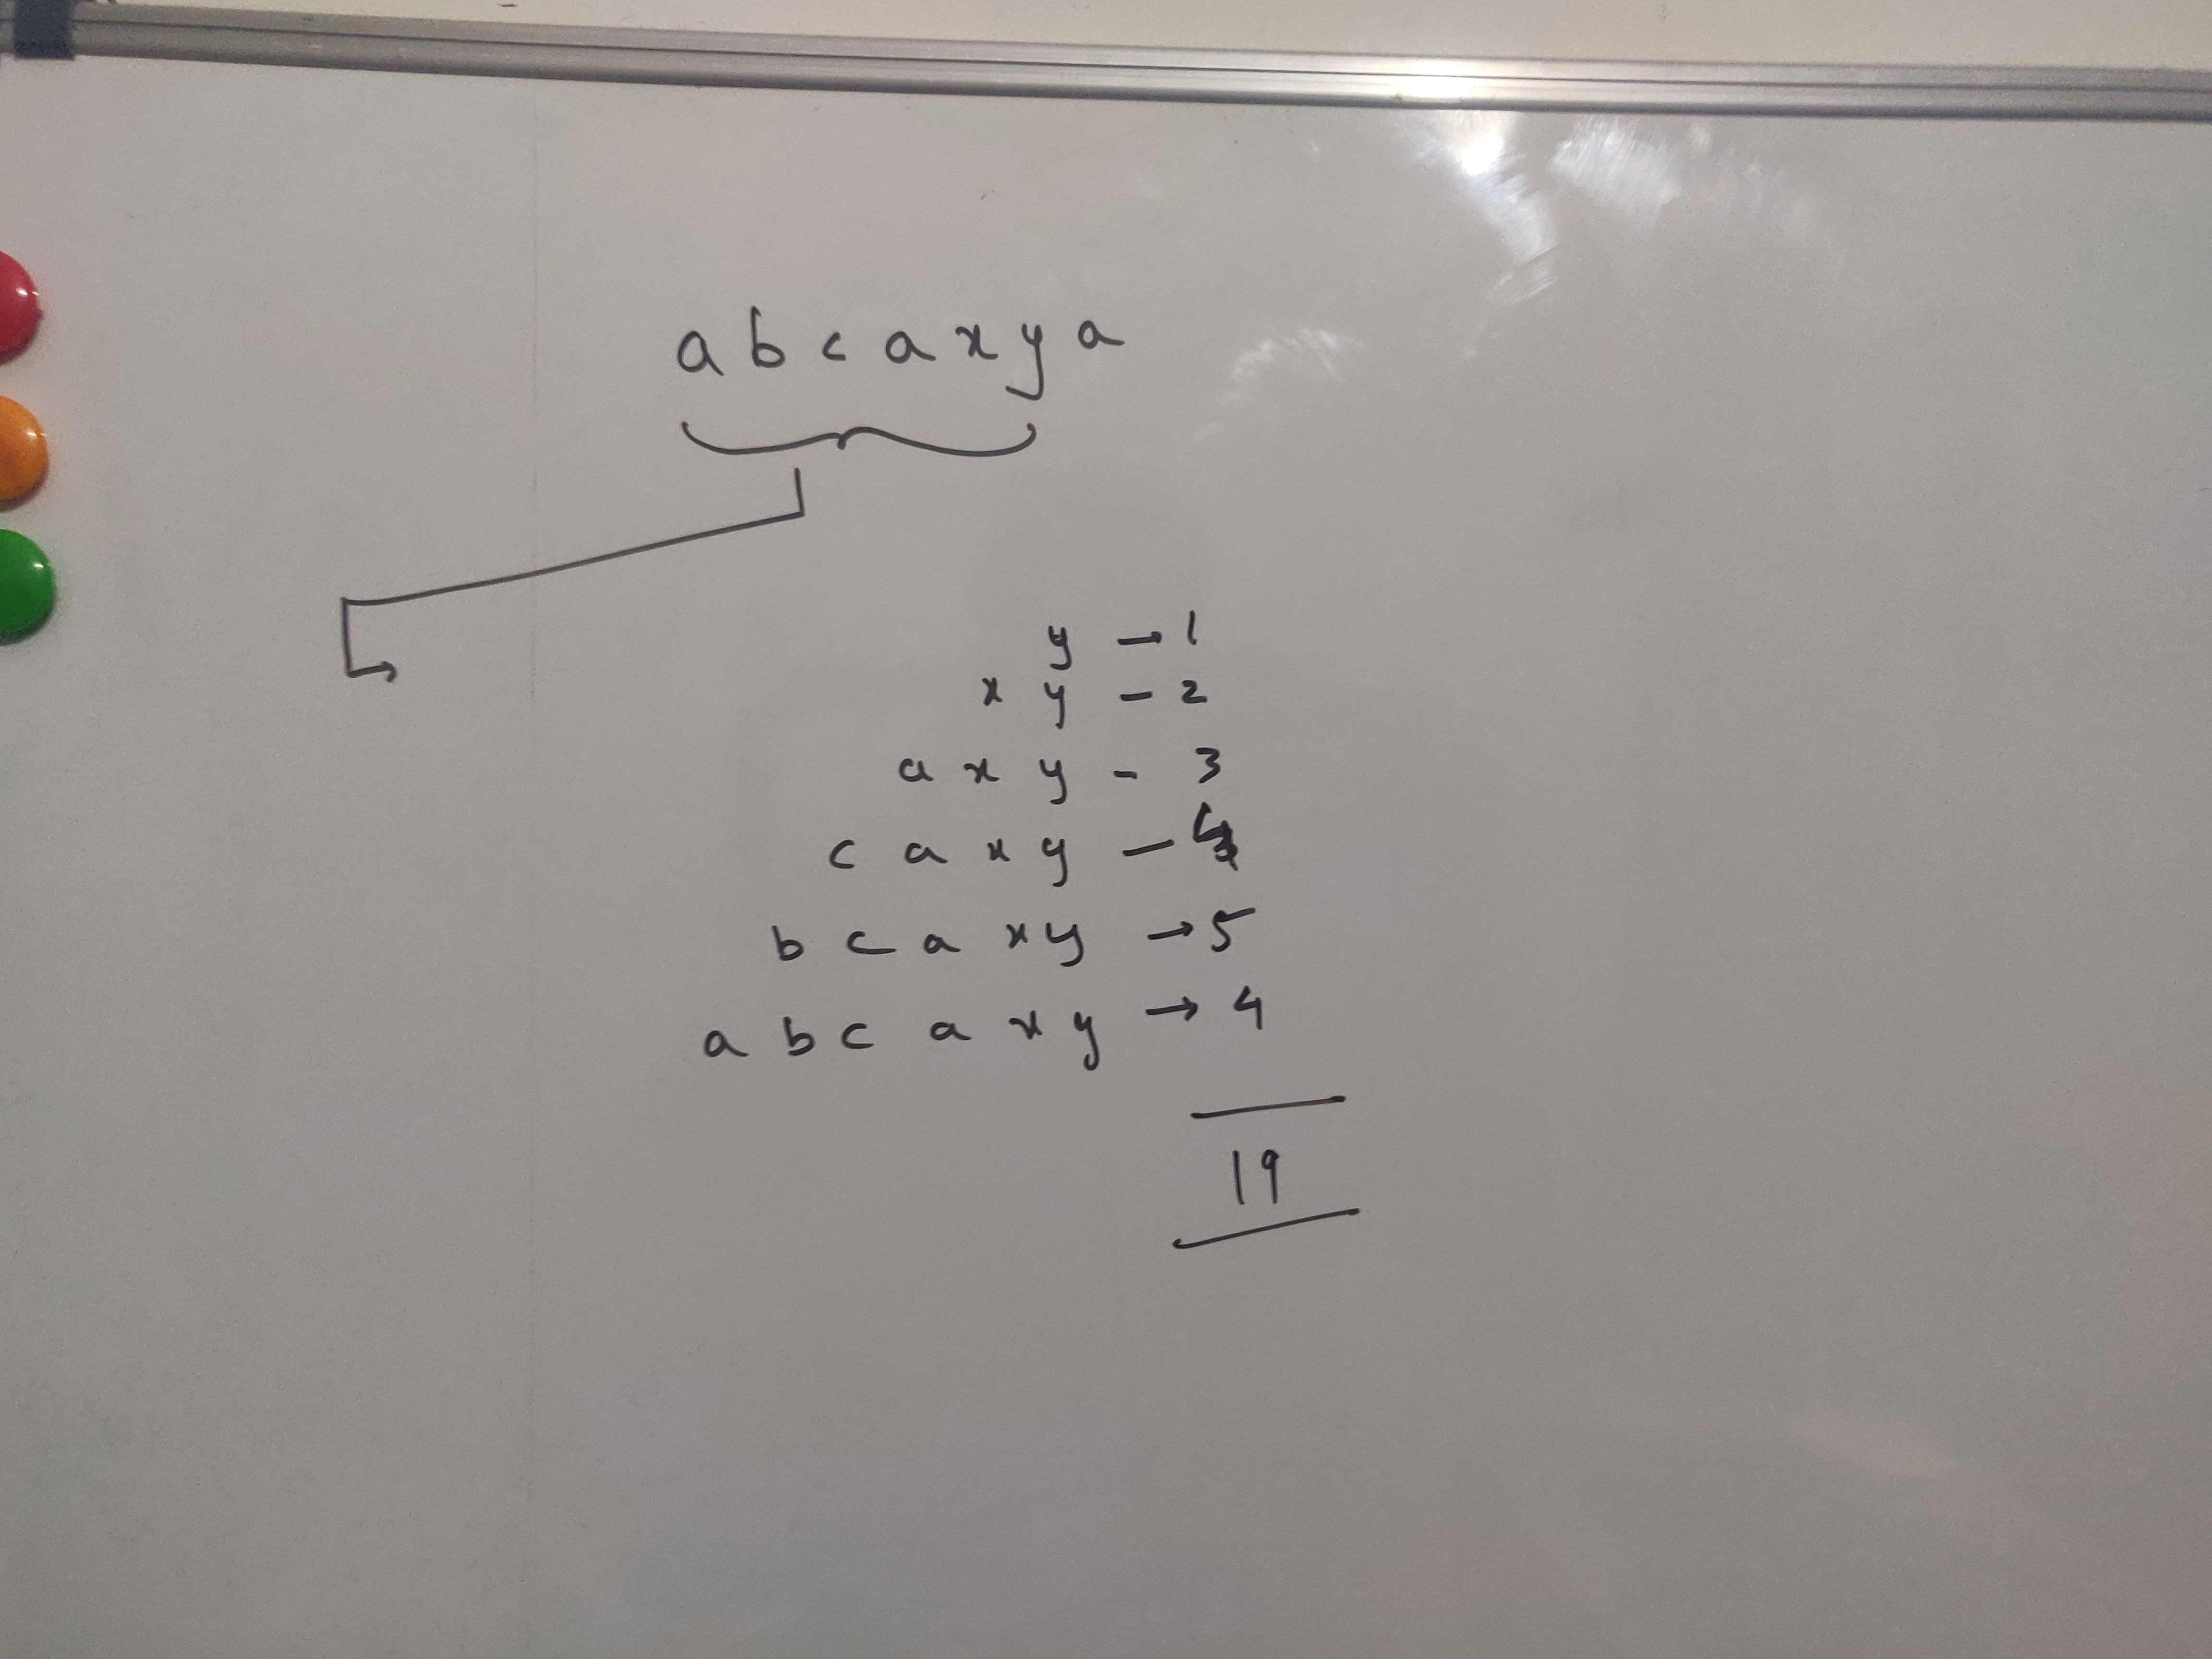 a b c a x y a
y → 1
x y - 2
a x y - 3
c a x y - 4
b c a x y → 5
a b c a x y → 4
19